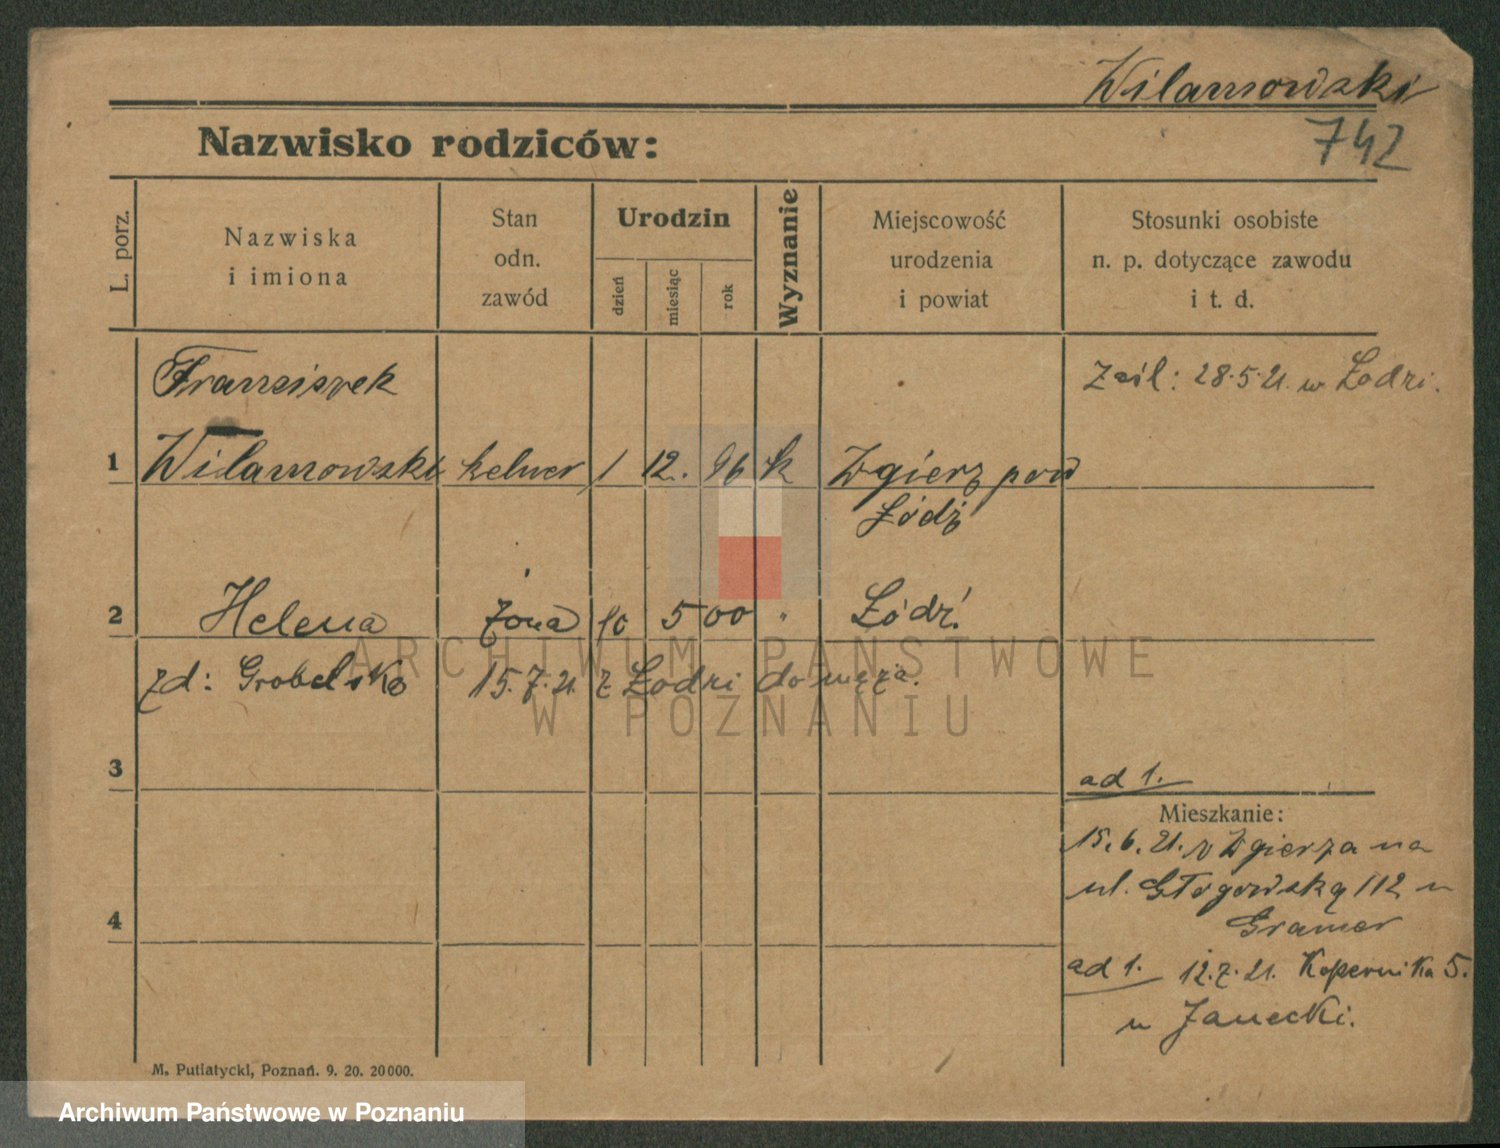 Wilamowski
742
Nazwisko rodziców:
L. porz.
Nazwiska
i imiona
Stan
odn.
zawód
Urodzin
dzień
miesiąc
rok
Wyznanie
Miejscowość
urodzenia
i powiat
Stosunki osobiste
n. p. dotyczące zawodu
i t. d.
Franciszek
zaśl: 28.5.21. w Łodzi.
1 Wilamowski kelner 1 12. 96 k Zgierz pow
Łódź
2 Helena żona 10 5 00 " Łódź
zd: Grobelska 15.7.21. z Łodzi do męża.
3
ad 1.
Mieszkanie:
15.6.21. z Zgierza na
ul. Głogowską 112 u
Gramer
4
ad 1. 12.7.21. Kopernika 5.
u Janecki.
M. Putiatycki, Poznań. 9. 20. 20000.
ARCHIWUM PAŃSTWOWE
W POZNANIU
Archiwum Państwowe w Poznaniu